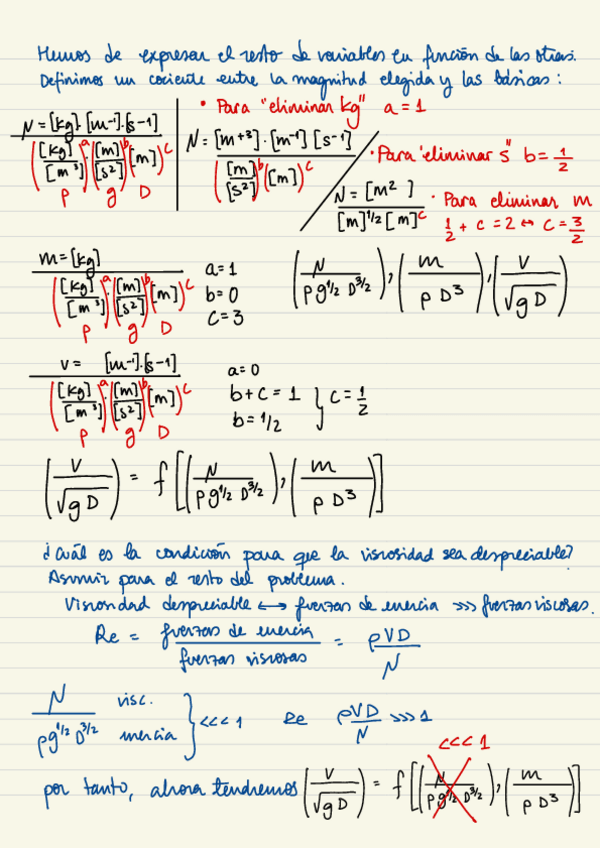 Hemos de expresar el resto de variables en función de las otras.
Definimos un cociente entre la magnitud elegida y las básicas:
μ = [kg]·[m⁻¹]·[s⁻¹]
([kg]/[m³])ᵃ ([m]/[s²])ᵇ [m])ᶜ
ρ g D
• Para "eliminar kg" a = 1
μ = [m⁺³]·[m⁻¹] [s⁻¹]
([m]/[s²])ᵇ ([m])ᶜ
• Para "eliminar s" b = 1/2
μ = [m²]
[m]^1/2 [m]ᶜ
• Para eliminar m
1/2 + c = 2 ↔ c = 3/2
m = [kg]
([kg]/[m³])ᵃ·([m]/[s²])ᵇ([m])ᶜ
ρ g D
a = 1
b = 0
c = 3
(μ / ρ g^1/2 D^3/2), (m / ρ D³), (V / √g D)
v = [m⁻¹]·[s⁻¹]
([kg]/[m³])ᵃ·([m]/[s²])ᵇ([m])ᶜ
ρ g D
a = 0
b + c = 1
b = 1/2
} c = 1/2
(V / √g D) = f [(μ / ρ g^1/2 D^3/2), (m / ρ D³)]
¿Cuál es la condición para que la viscosidad sea despreciable?
Asumir para el resto del problema.
Viscosidad despreciable ⟷ fuerzas de inercia >>> fuerzas viscosas.
Re = fuerzas de inercia / fuerzas viscosas = ρVD / μ
μ / ρ g^1/2 D^3/2 visc. / inercia } <<< 1 Re ρVD / μ >>> 1
<<< 1
por tanto, ahora tendremos (V / √g D) = f [(μ / ρ g^1/2 D^3/2), (m / ρ D³)]